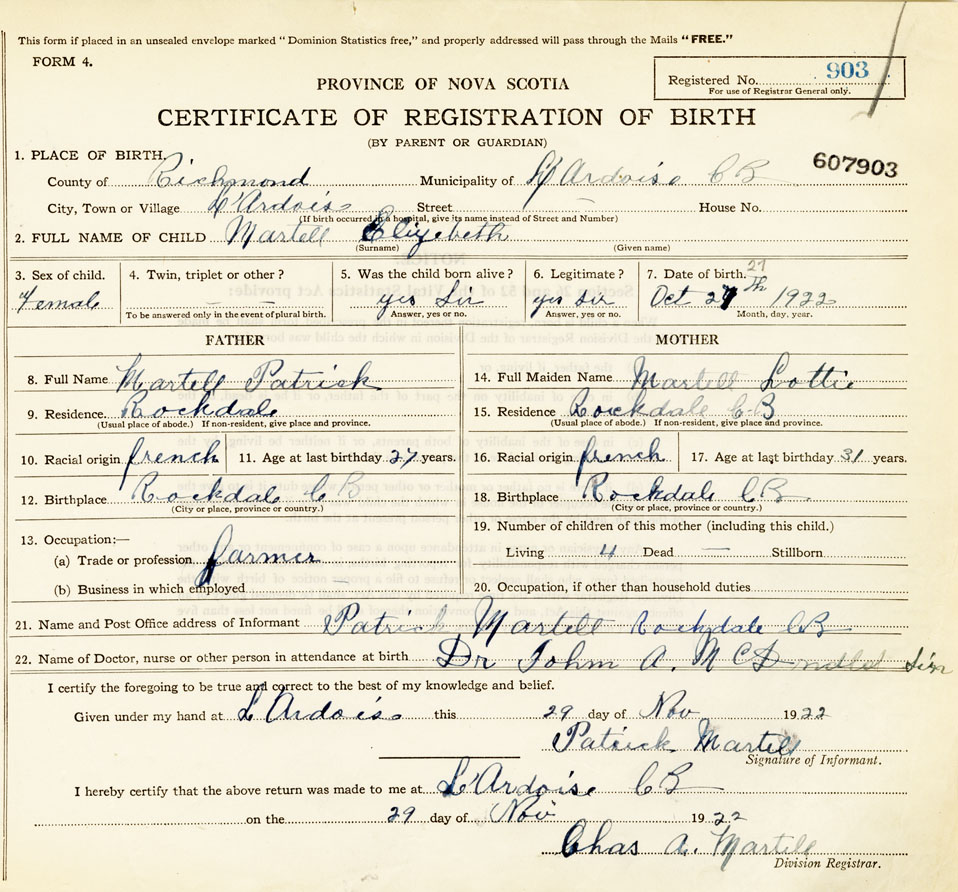 This form if placed in an unsealed envelope marked "Dominion Statistics free," and properly addressed will pass through the Mails "FREE."
FORM 4.
Registered No. 903
For use of Registrar General only.
PROVINCE OF NOVA SCOTIA
CERTIFICATE OF REGISTRATION OF BIRTH
(BY PARENT OR GUARDIAN)
607903
1. PLACE OF BIRTH.
County of Richmond Municipality of L'Ardoise C B
City, Town or Village L'Ardoise Street — House No.
(If birth occurred in a hospital, give its name instead of Street and Number)
2. FULL NAME OF CHILD Martell Elizebeth
(Surname) (Given name)
3. Sex of child. Female
4. Twin, triplet or other? — —
To be answered only in the event of plural birth.
5. Was the child born alive? yes Sir
Answer, yes or no.
6. Legitimate? yes sir
Answer, yes or no.
7. Date of birth. 27
Oct 27th 1922
Month, day, year.
FATHER
8. Full Name Martell Patrick
9. Residence. Rockdale
(Usual place of abode.) If non-resident, give place and province.
10. Racial origin french 11. Age at last birthday 27 years.
12. Birthplace Rockdale C B
(City or place, province or country.)
13. Occupation:—
(a) Trade or profession farmer
(b) Business in which employed —
MOTHER
14. Full Maiden Name Martell Lottie
15. Residence Rockdale C B
(Usual place of abode.) If non-resident, give place and province.
16. Racial origin french 17. Age at last birthday 31 years.
18. Birthplace Rockdale C B
(City or place, province or country.)
19. Number of children of this mother (including this child.)
Living 4 Dead — Stillborn
20. Occupation, if other than household duties
21. Name and Post Office address of Informant Patrick Martell Rockdale C B
22. Name of Doctor, nurse or other person in attendance at birth Dr John A. McDonald Sir
I certify the foregoing to be true and correct to the best of my knowledge and belief.
Given under my hand at L'Ardoise this 29 day of Nov 1922
Patrick Martell
Signature of Informant.
I hereby certify that the above return was made to me at L'Ardoise C B
on the 29 day of Nov 1922
Chas A. Martell
Division Registrar.